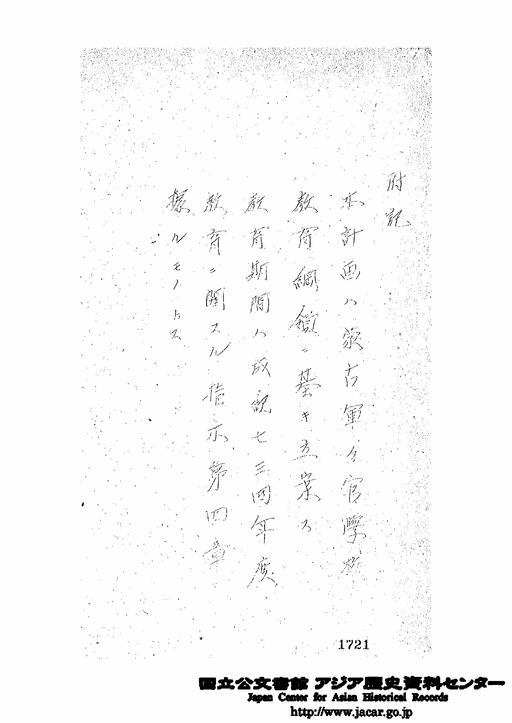 附記
本計画ハ蒙古軍々官学校
教育綱領ニ基キ立案ス
教育期間ハ成紀七三四年度
教育ニ関スル指示第四章
ニ據ルモノトス
1721
国立公文書館 アジア歴史資料センター
Japan Center for Asian Historical Records
http://www.jacar.go.jp